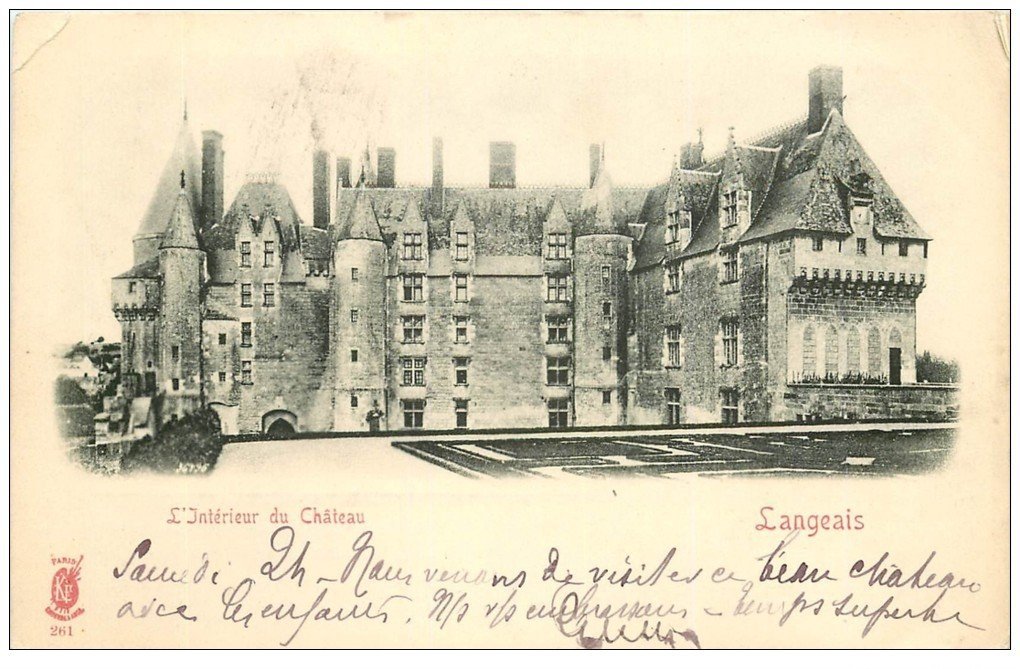 L'Intérieur du Château
Langeais
PARIS
261
Samedi 2h - Nous venons de visiter ce beau château
avec les enfants. N/s v/s embrassons - temps superbe